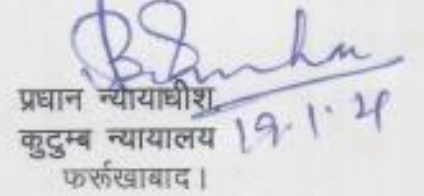 प्रधान न्यायाधीश,
कुटुम्ब न्यायालय 19.1.21
फर्रुखाबाद।